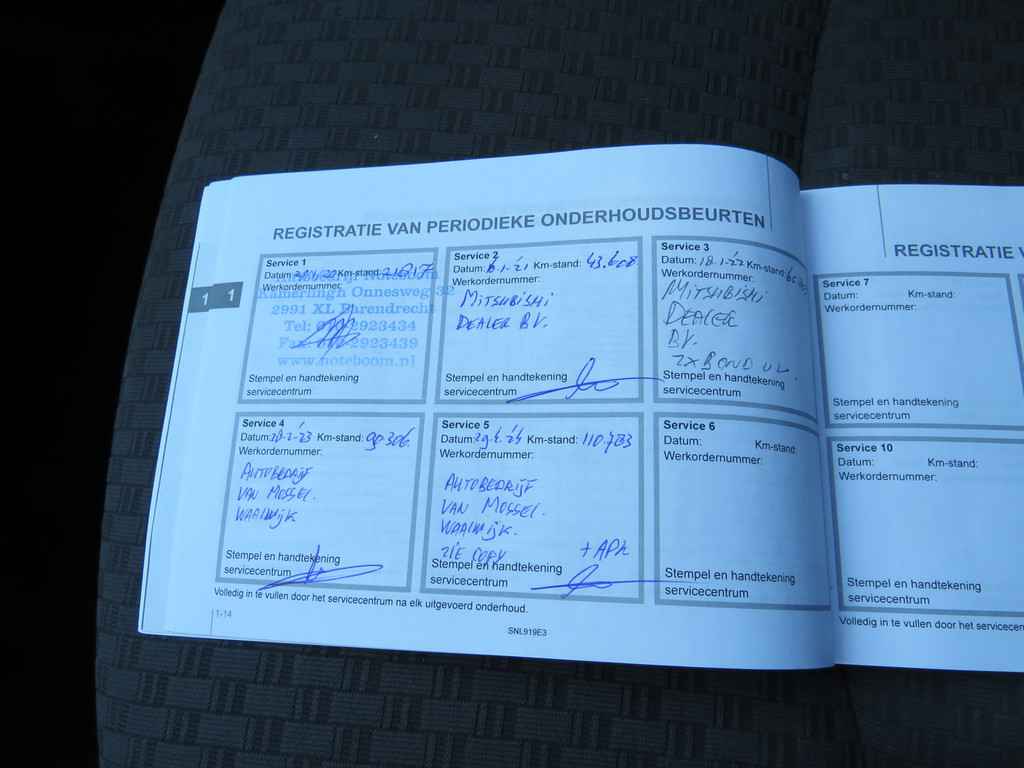 REGISTRATIE VAN PERIODIEKE ONDERHOUDSBEURTEN
Service 1
Datum: Km-stand:
Werkordernummer:
Kamerlingh Onnesweg 32
2991 XL Barendrecht
Tel: 2923434
Fax: 2923439
www.noteboom.nl
Stempel en handtekening
servicecentrum
Service 2
Datum: 6.1-'21 Km-stand: 43.608
Werkordernummer:
MITSUBISHI
DEALER BV.
Stempel en handtekening
servicecentrum
Service 3
Datum: 18.1-'22 Km-stand:
Werkordernummer:
MITSUBISHI
DEALER
BV.
Stempel en handtekening
servicecentrum
1 1
Service 4
Datum: Km-stand: 90306
Werkordernummer:
AUTOBEDRIJF
VAN MOSSEL.
WAALWIJK
Stempel en handtekening
servicecentrum
Service 5
Datum: Km-stand: 110.783
Werkordernummer:
AUTOBEDRIJF
VAN MOSSEL.
WAALWIJK.
ZIE COPY + APK
Stempel en handtekening
servicecentrum
Service 6
Datum: Km-stand:
Werkordernummer:
Stempel en handtekening
servicecentrum
Volledig in te vullen door het servicecentrum na elk uitgevoerd onderhoud.
1-14
SNL919E3
REGISTRATIE V
Service 7
Datum: Km-stand:
Werkordernummer:
Stempel en handtekening
servicecentrum
Service 10
Datum: Km-stand:
Werkordernummer:
Stempel en handtekening
servicecentrum
Volledig in te vullen door het servicecen